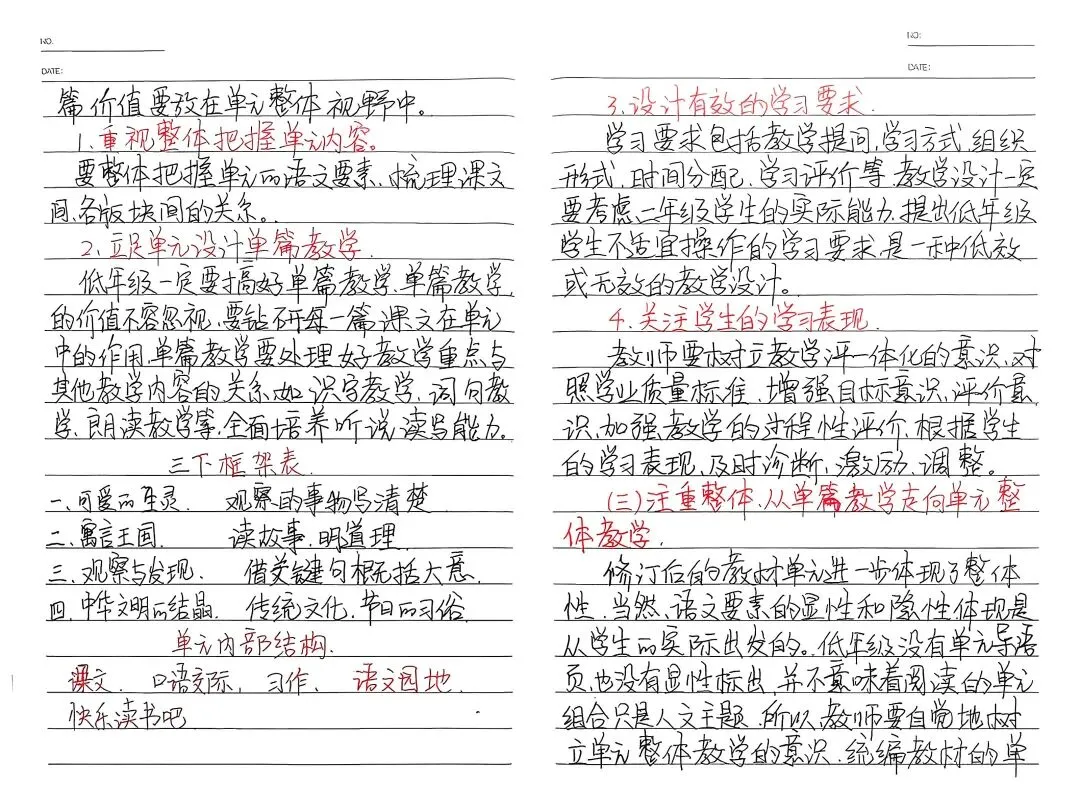 NO.
DATE:
篇价值要放在单元整体视野中。
1.重视整体把握单元内容。
要整体把握单元的语文要素、梳理课文
间、各版块间的关系。
2.立足单元设计单篇教学.
低年级一定要搞好单篇教学,单篇教学,
的价值不容忽视,要钻研每一篇课文在单元
中的作用,单篇教学要处理好教学重点与
其他教学内容的关系,如识字教学,词句教
学,朗读教学等,全面培养听说读写能力。
三下框架表.
一.可爱的生灵 观察的事物写清楚
二.寓言王国. 读故事,明道理.
三.观察与发现. 借关键句概括大意.
四.中华文明的结晶. 传统文化,节日的习俗
单元内部结构.
课文. 口语交际, 习作、 语文园地.
快乐读书吧
NO:
DATE:
3.设计有效的学习要求.
学习要求包括教学提问,学习方式,组织
形式,时间分配,学习评价等.教学设计一定
要考虑二年级学生的实际能力.提出低年级
学生不适宜操作的学习要求,是一种低效
或无效的教学设计。
4.关注学生的学习表现.
教师要树立教学评一体化的意识,对
照学业质量标准,增强目标意识,评价意
识,加强教学的过程性评价,根据学生
的学习表现,及时诊断,激励,调整。
(三)注重整体,从单篇教学走向单元整
体教学.
修订后的教材单元进一步体现了整体
性.当然,语文要素的显性和隐性体现是
从学生的实际出发的。低年级没有单元导语
页,也没有显性标出,并不意味着阅读的单元
组合只是人文主题.所以,教师要自觉地树
立单元整体教学的意识.统编教材的单